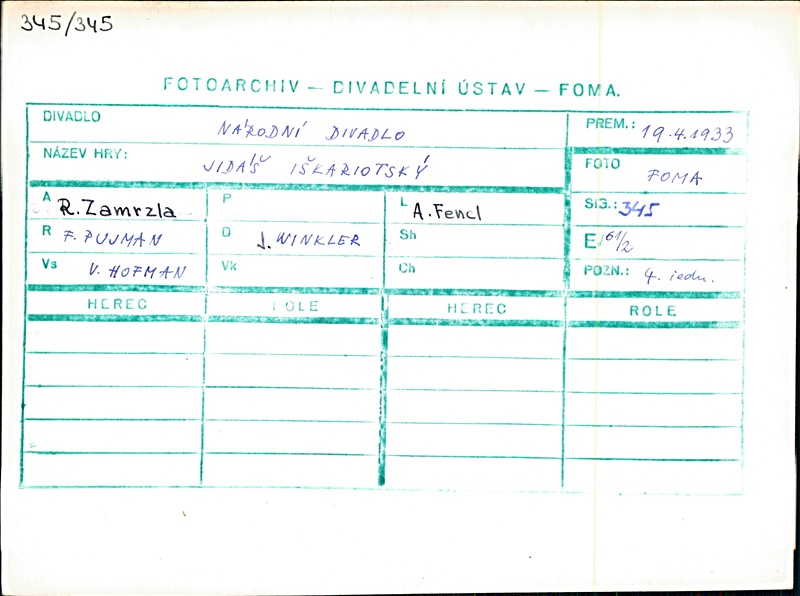 345/345
FOTOARCHIV — DIVADELNÍ ÚSTAV — FOMA.
DIVADLO NÁRODNÍ DIVADLO PREM.: 19.4.1933
NÁZEV HRY: JIDÁŠ IŠKARIOTSKÝ FOTO FOMA
A R. Zamrzla P L A. Fencl SIG.: 345
R F. PUJMAN D J. WINKLER Sh E 161/2
Vs V. HOFMAN Vk Ch POZN.: 4. jedn.
HEREC ROLE HEREC ROLE